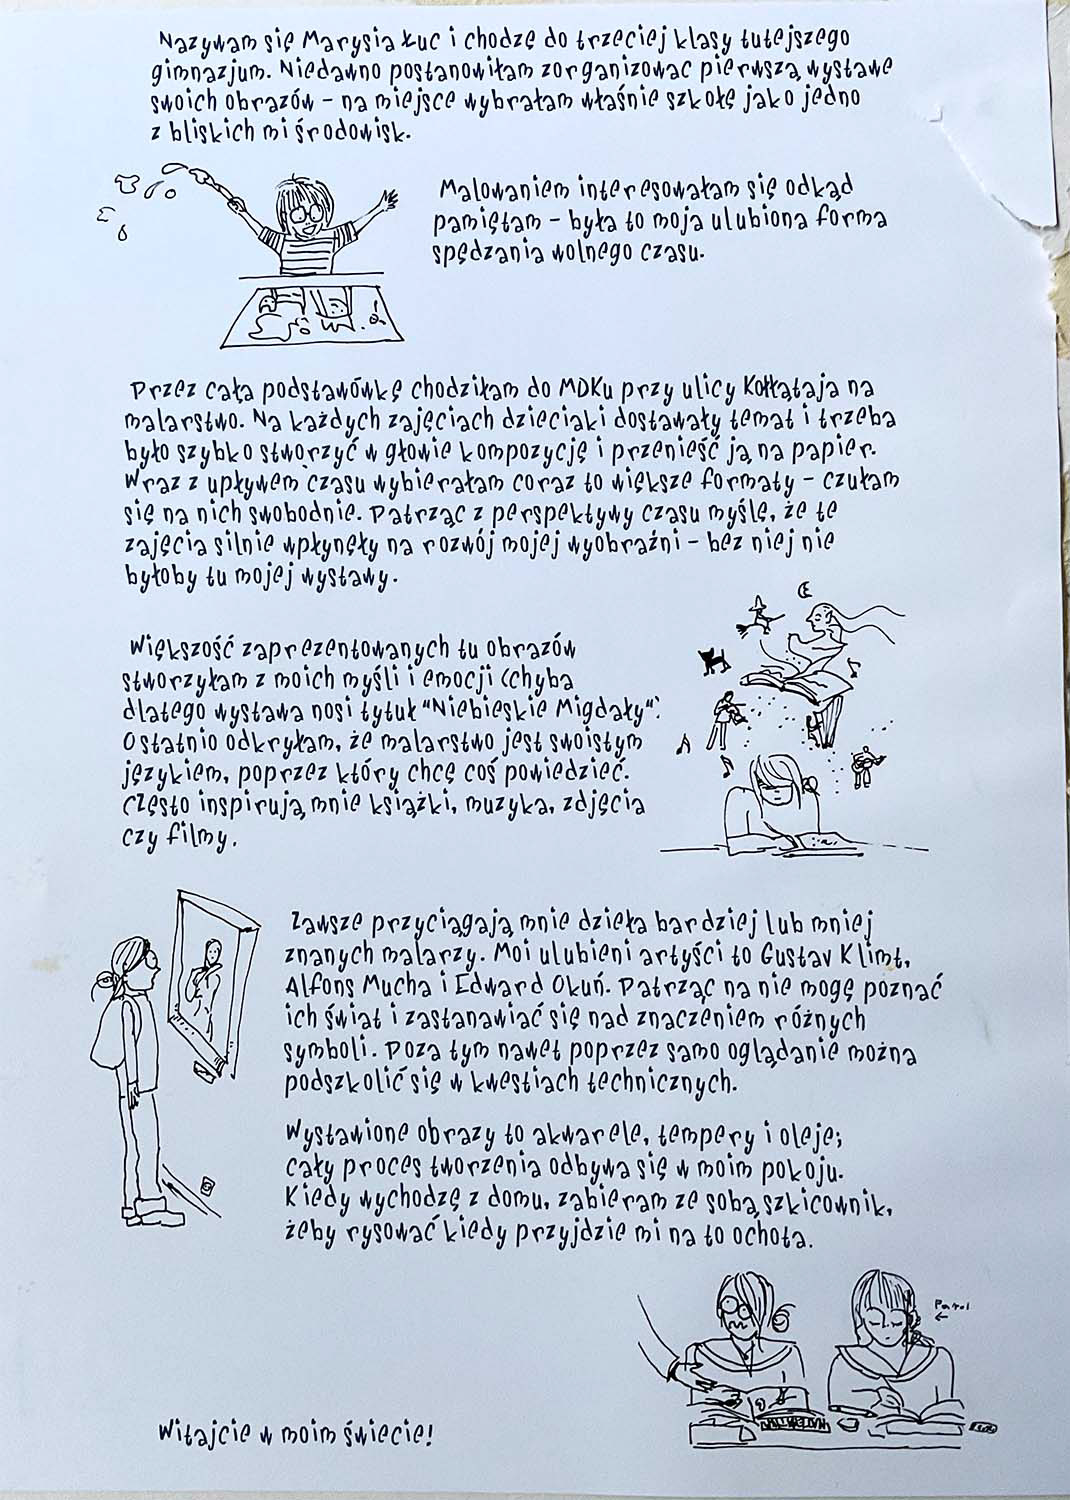 Nazywam się Marysia Łuc i chodzę do trzeciej klasy tutejszego
gimnazjum. Niedawno postanowiłam zorganizować pierwszą wystawę
swoich obrazów – na miejsce wybrałam właśnie szkołę jako jedno
z bliskich mi środowisk.
Malowaniem interesowałam się odkąd
pamiętam – była to moja ulubiona forma
spędzania wolnego czasu.
Przez całą podstawówkę chodziłam do MDKu przy ulicy Kołłątaja na
malarstwo. Na każdych zajęciach dzieciaki dostawały temat i trzeba
było szybko stworzyć w głowie kompozycję i przenieść ją na papier.
Wraz z upływem czasu wybierałam coraz to większe formaty – czułam
się na nich swobodnie. Patrząc z perspektywy czasu myślę, że te
zajęcia silnie wpłynęły na rozwój mojej wyobraźni – bez niej nie
byłoby tu mojej wystawy.
Większość zaprezentowanych tu obrazów
stworzyłam z moich myśli i emocji (chyba
dlatego wystawa nosi tytuł "Niebieskie Migdały".
Ostatnio odkryłam, że malarstwo jest swoistym
językiem, poprzez który chcę coś powiedzieć.
Często inspirują mnie książki, muzyka, zdjęcia
czy filmy.
Zawsze przyciągają mnie dzieła bardziej lub mniej
znanych malarzy. Moi ulubieni artyści to Gustav Klimt,
Alfons Mucha i Edward Okuń. Patrząc na nie mogę poznać
ich świat i zastanawiać się nad znaczeniem różnych
symboli. Poza tym nawet poprzez samo oglądanie można
podszkolić się w kwestiach technicznych.
Wystawione obrazy to akwarele, tempery i oleje;
cały proces tworzenia odbywa się w moim pokoju.
Kiedy wychodzę z domu, zabieram ze sobą szkicownik,
żeby rysować kiedy przyjdzie mi na to ochota.
Witajcie w moim świecie!